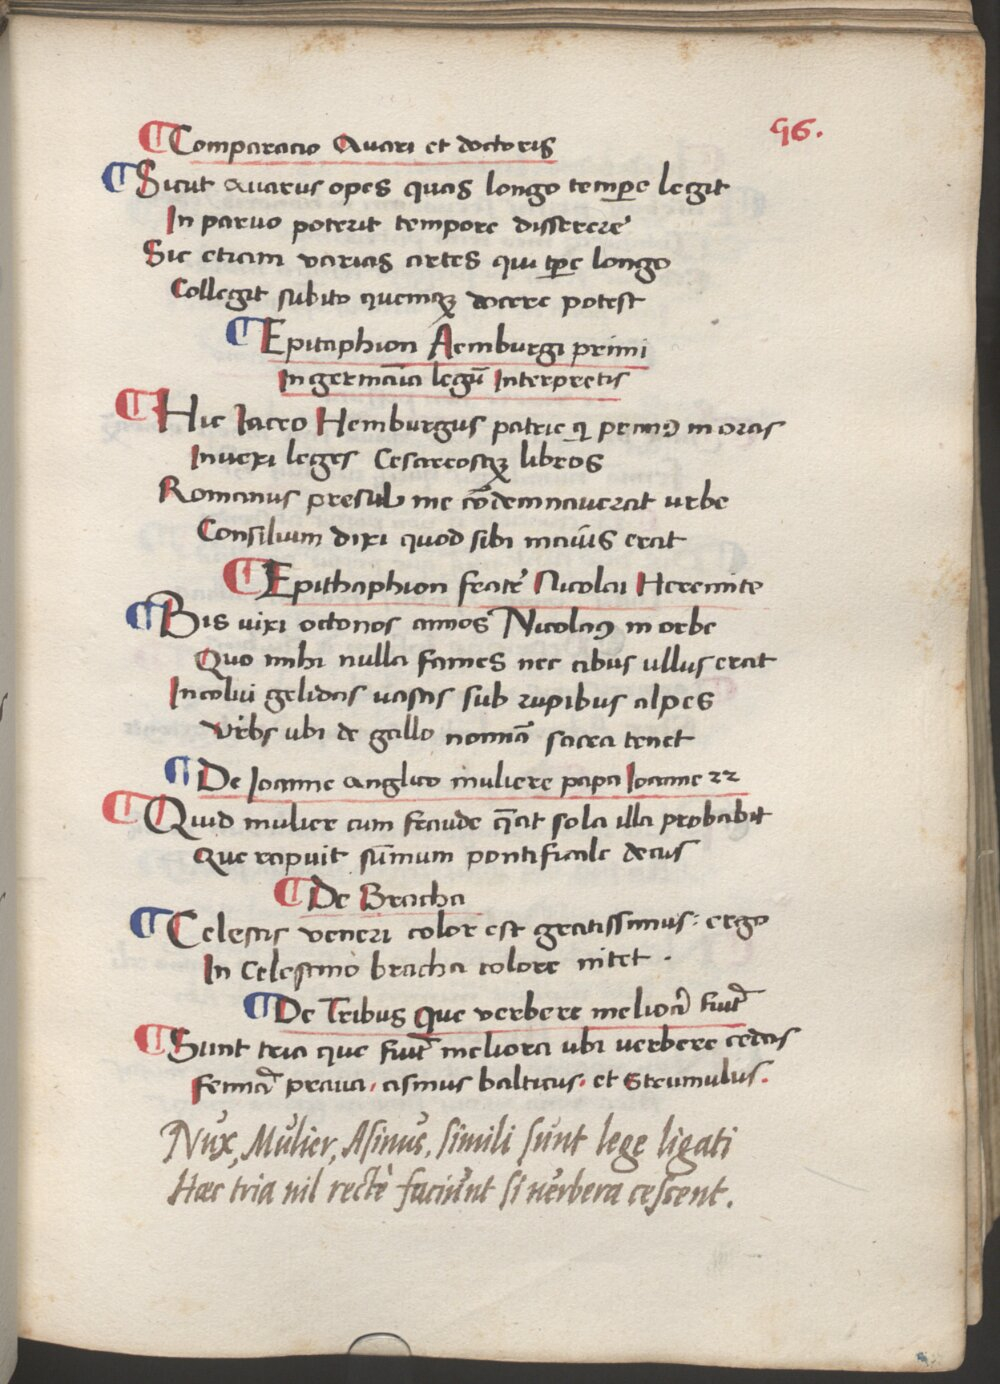 96.
Comparacio Auari et doctoris
Sicut auarus opes quas longo tempore legit
In paruo poterit tempore disserere
Sic etiam varias artes qui tpe longo
Collegit subito quemqꝫ docere potest
Epitaphion Aemburgi primi
In germania legũ Interpretis
Hic Iaceo Hemburgus patrie qͥ primꝰ in oras
Inuexi leges Cesareosqꝫ libros
Romanus presul me cõdemnauerat vrbe
Consilium dixi quod sibi maius erat
Epithaphion fratrͥ Nicolai Heremite
Bis uixi octonos annos Nicolaꝰ in orbe
Quo mihi nulla fames nec cibus ullus erat
Incolui gelidas uastas sub rupibus alpes
Vrbs ubi de gallo nomẽ sacra tenet
De Ioanne anglico muliere papa Ioanne 22
Quid mulier cum fraude q̃at sola illa probabit
Que rapuit sũmum pontificale decus
De Bracha
Celestis veneri color est gratissimus: ergo
In Celestino bracha colore nitet .
De Tribus que verbere meliorã fiũt
Sunt tria que fiũt meliora ubi uerbere cedas
Femĩa praua, asinus balticus, et Strumulus.
Nux, Mulier, Asinus, simili sunt lege ligati
Haec tria nil rectè faciunt si uerbera cessent.